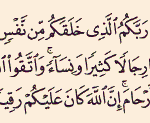 رَبَّكُمُ ٱلَّذِى خَلَقَكُم مِّن نَّفْسٍ
رِجَالًا كَثِيرًا وَنِسَآءً ۚ وَٱتَّقُوا۟
رْحَامَ ۚ إِنَّ ٱللَّهَ كَانَ عَلَيْكُمْ رَقِيبًا